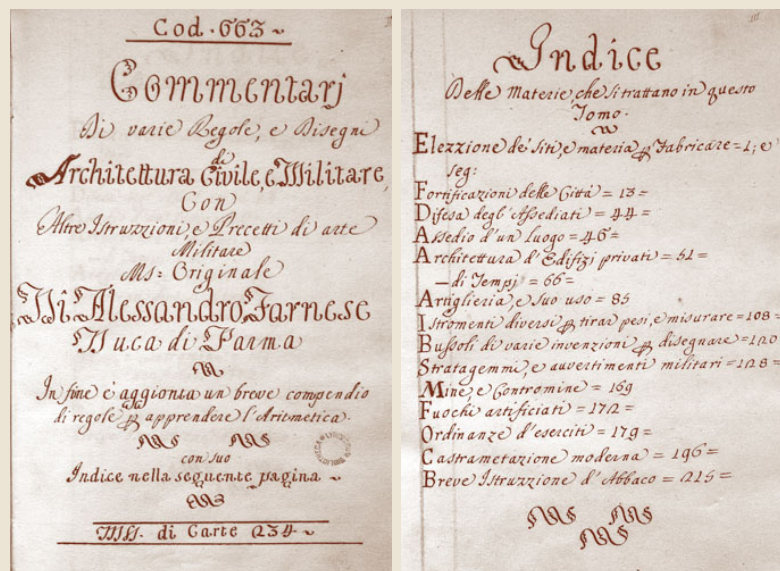 Cod. 663
Commentarj
Di varie Regole, e Disegni
di
Architettura Civile, e Militare,
Con
Altre Istruzzioni, e Precetti di arte
Militare
Ms: Originale
Di Alessandro Farnese
Duca di Parma
In fine è aggionta un breve compendio
di regole per apprendere l'Aritmetica.
con suo
Indice nella seguente pagina
MSS. di Carte 234
Indice
Delle Materie, che si trattano in questo
Tomo.
Elezzione de' Siti, e materia per Fabricare = 1; e
seg:
Fortificazioni delle Città = 13 =
Difesa degl' Assediati = 44 =
Assedio d'un Luogo = 46 =
Architettura d'Edifizi privati = 51 =
— di Tempj = 66 =
Artiglieria, e suo uso = 85
Istromenti diversi per tirar pesi, e misurare = 108 =
Bussoli di varie invenzioni per disegnare = 120
Stratagemmi, e avvertimenti militari = 128 =
Mine, e Contromine = 169
Fuochi artificiati = 172 =
Ordinanze d'eserciti = 179 =
Castrametazione moderna = 196 =
Breve Istruzzione d'Abbaco = 215 =